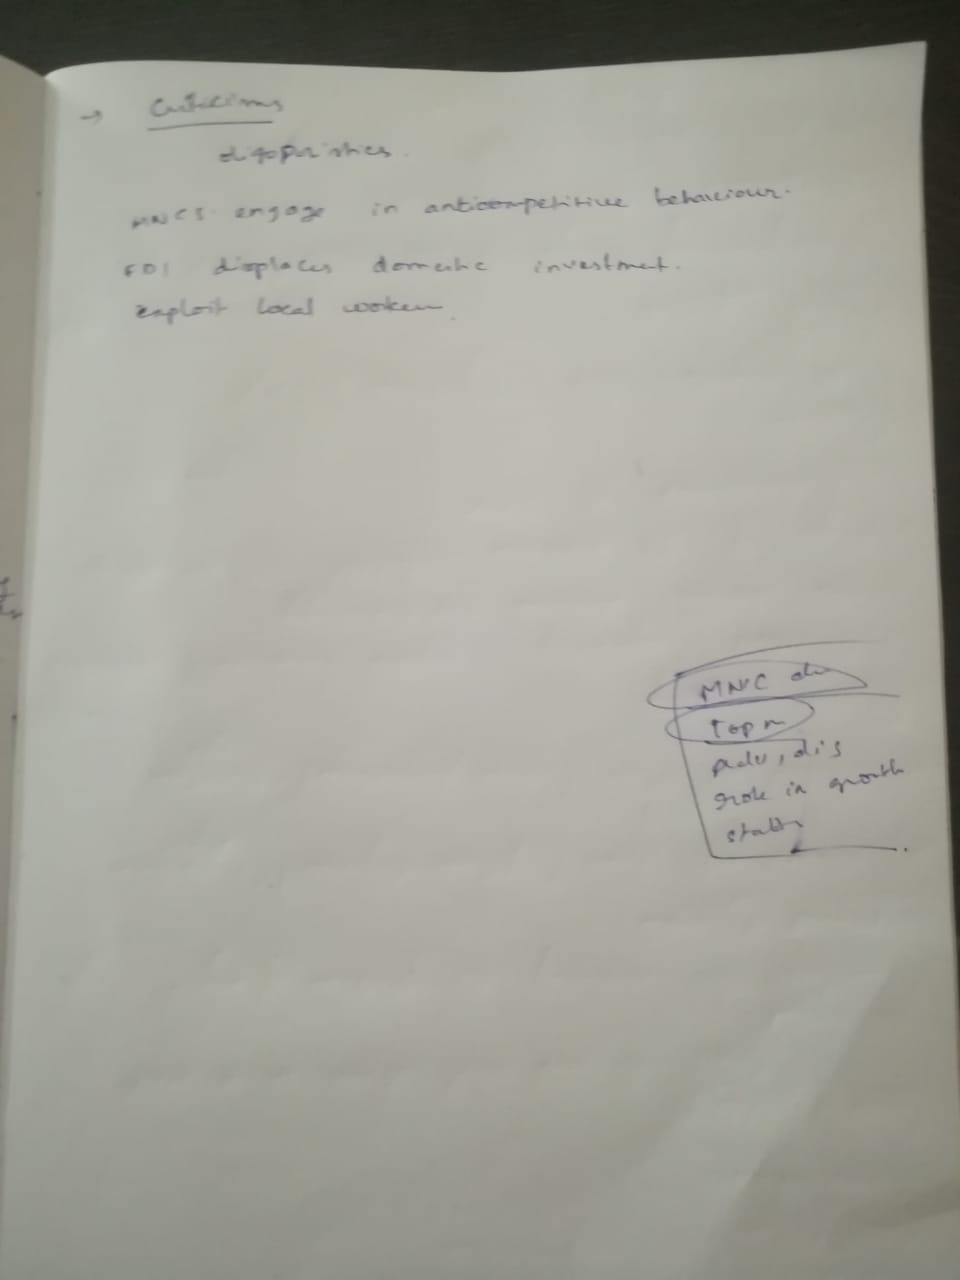 → Criticisms
oligopolistics.
MNCS. engage in anticompetitive behaviour.
FDI displaces domestic investment.
exploit local workers.
MNC
Top
adv, dis
role in growth